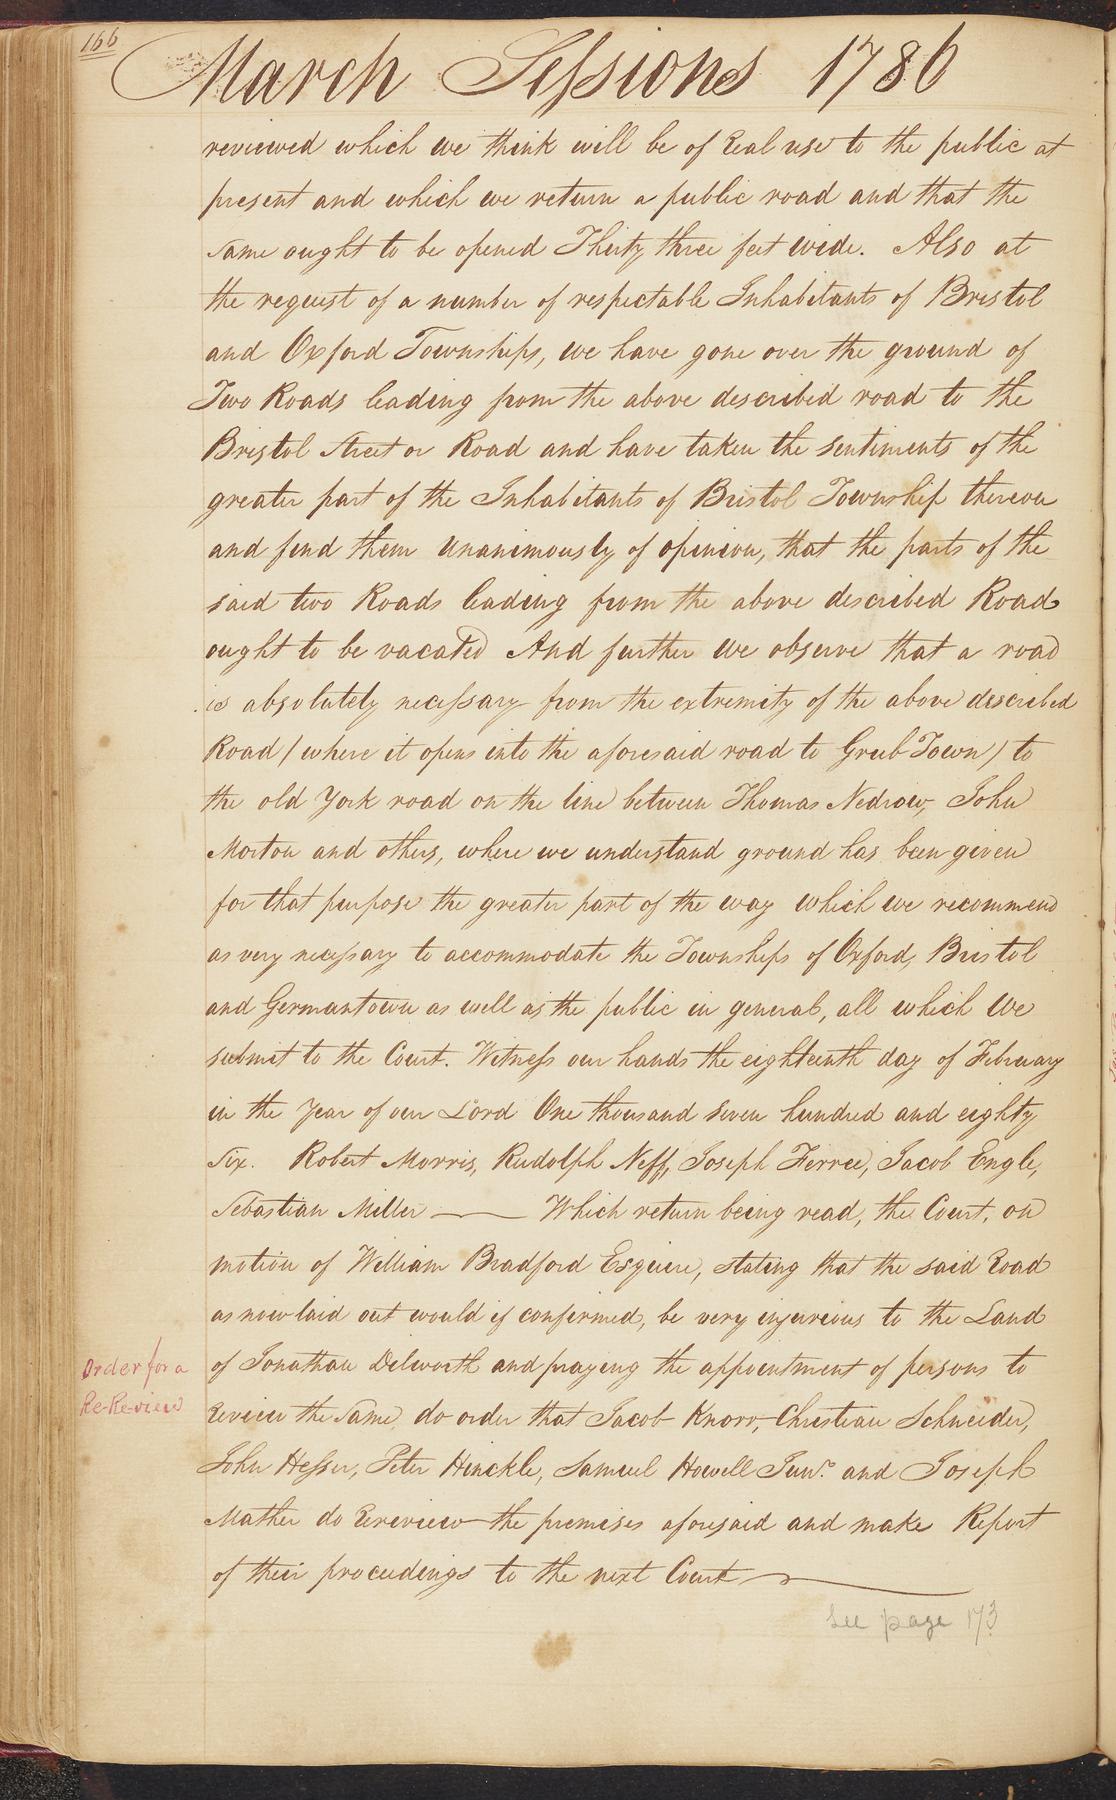 166
March Sessions 1786
reviewed which we think will be of Real use to the public at
present and which we return a public road and that the
same ought to be opened Thirty three feet wide. Also at
the request of a number of respectable Inhabitants of Bristol
and Oxford Townships, we have gone over the ground of
Two Roads leading from the above described road to the
Bristol Street or Road and have taken the sentiments of the
greater part of the Inhabitants of Bristol Township thereon
and find them Unanimously of opinion, that the parts of the
said two Roads leading from the above described Road
ought to be vacated And further We observe that a road
is absolutely necessary from the extremity of the above described
Road (where it opens into the aforesaid road to Grub Town) to
the old York road on the line between Thomas Nedrow, John
Morton and others, where we understand ground has been given
for that purpose the greater part of the way which we recommend
as very necessary to accommodate the Townships of Oxford, Bristol
and Germantown as well as the public in general, all which We
submit to the Court. Witness our hands the eighteenth day of February
in the Year of our Lord One thousand seven hundred and eighty
Six. Robert Morris, Rudolph Neff, Joseph Ferree, Jacob Engle,
Sebastian Miller —— Which return being read, the Court, on
motion of William Bradford Esquire, stating that the said Road
as now laid out would if confirmed, be very injurious to the Land
of Jonathan Dilworth and praying the appointment of persons to
Order for a
Re-Review
Review the Same, do order that Jacob Knorr, Christian Schneider,
John Hesser, Peter Hinckle, Samuel Howell Junr. and Joseph
Mather do Rereview the premises aforesaid and make Report
of their proceedings to the next Court
See page 173